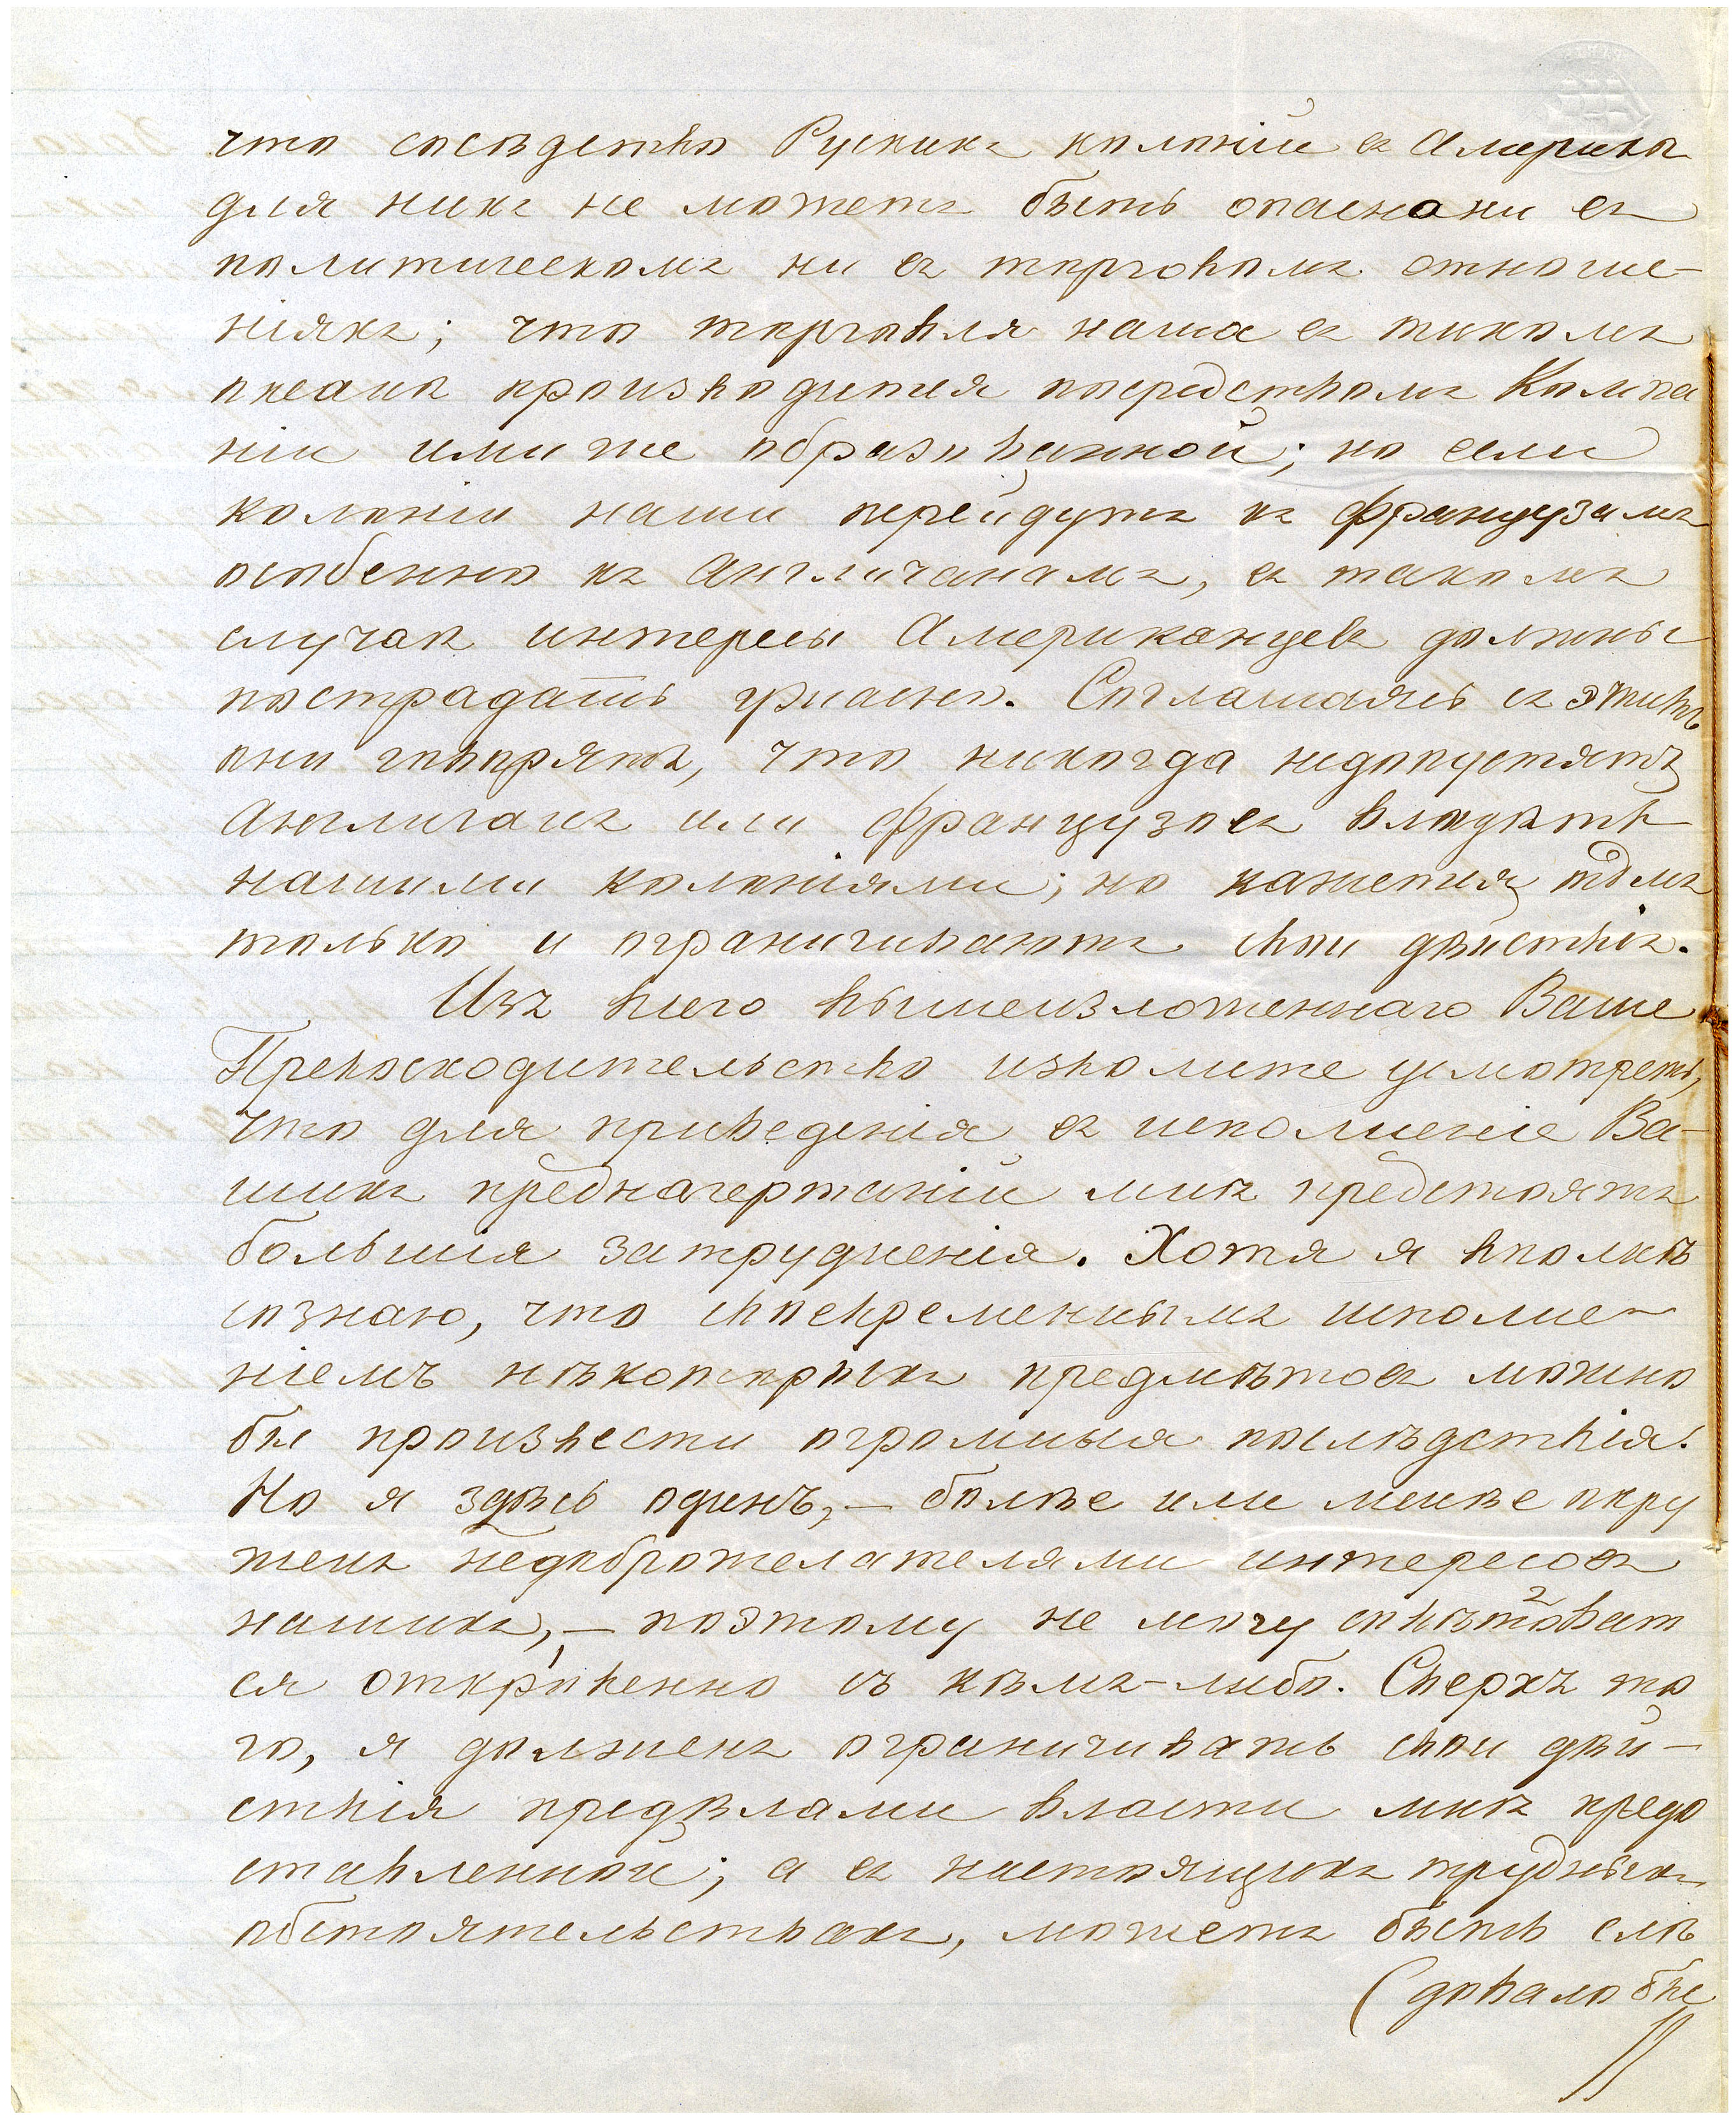 что сосѣдство Рускихъ колоній въ Америкѣ
для нихъ не можетъ быть опасно ни въ
политическомъ ни въ торговомъ отноше-
ніяхъ; что торговля наша въ тихомъ
океанѣ производится посредствомъ Компа
ніи ими же образованной; но если
колоніи наши перейдутъ къ французамъ
особенно къ Англичанамъ, въ такомъ
случаѣ интересы Американцевъ должны
пострадать ужасно. Соглашаясь съ этимъ
они говорятъ, что никогда недопустятъ
Англичанъ или французовъ владѣть
нашими колоніями; но кажется тѣмъ
только и ограничиваютъ свои дѣйствія.
Изъ всего вышеизложеннаго Ваше
Превосходительство изволите усмотреть,
что для приведенія въ исполненіе Ва-
шихъ предначертаній мнѣ предстоятъ
большія затрудненія. Хотя я вполнѣ
сознаю, что своевременнымъ исполне-
ніемъ нѣкоторыхъ предмѣтовъ можно
бы произвести огромныя послѣдствія.
Но я здѣсь одинъ, – болѣе или менѣе окру
женъ недоброжелателями интересовъ
нашихъ, – поэтому не могу совѣтоват
ся откровенно съ кѣмъ-либо. Сверхъ то
го, я долженъ ограничивать свои дѣй-
ствія предѣлами власти мнѣ предо
ставленной; а въ настоящихъ трудныхъ
обстоятельствахъ, можетъ быть слѣ
(довало бы